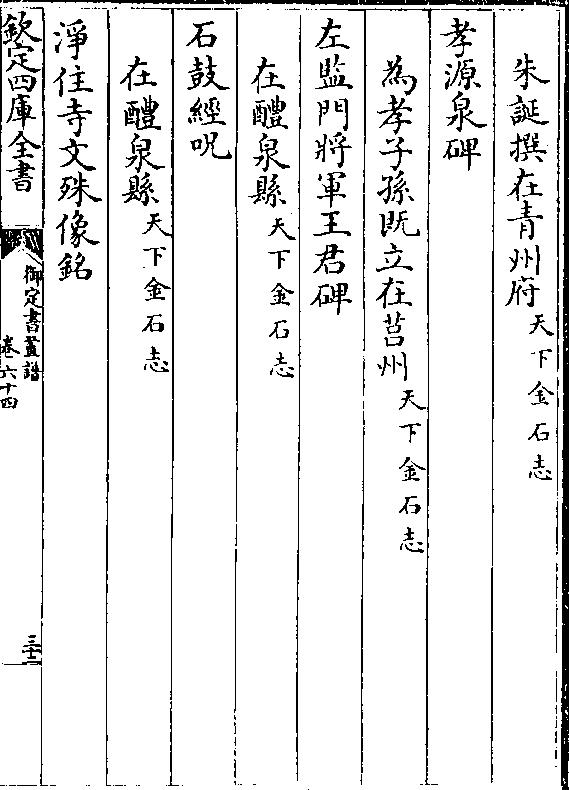 朱誕撰在青州府天下金石志
孝源泉碑
為孝子孫既立在莒州天下金石志
左監門將軍王君碑
在醴泉縣天下金石志
石鼓經呪
在醴泉縣天下金石志
淨住寺文殊像銘
欽定四庫全書
御定書畫譜
卷六十四
三十二